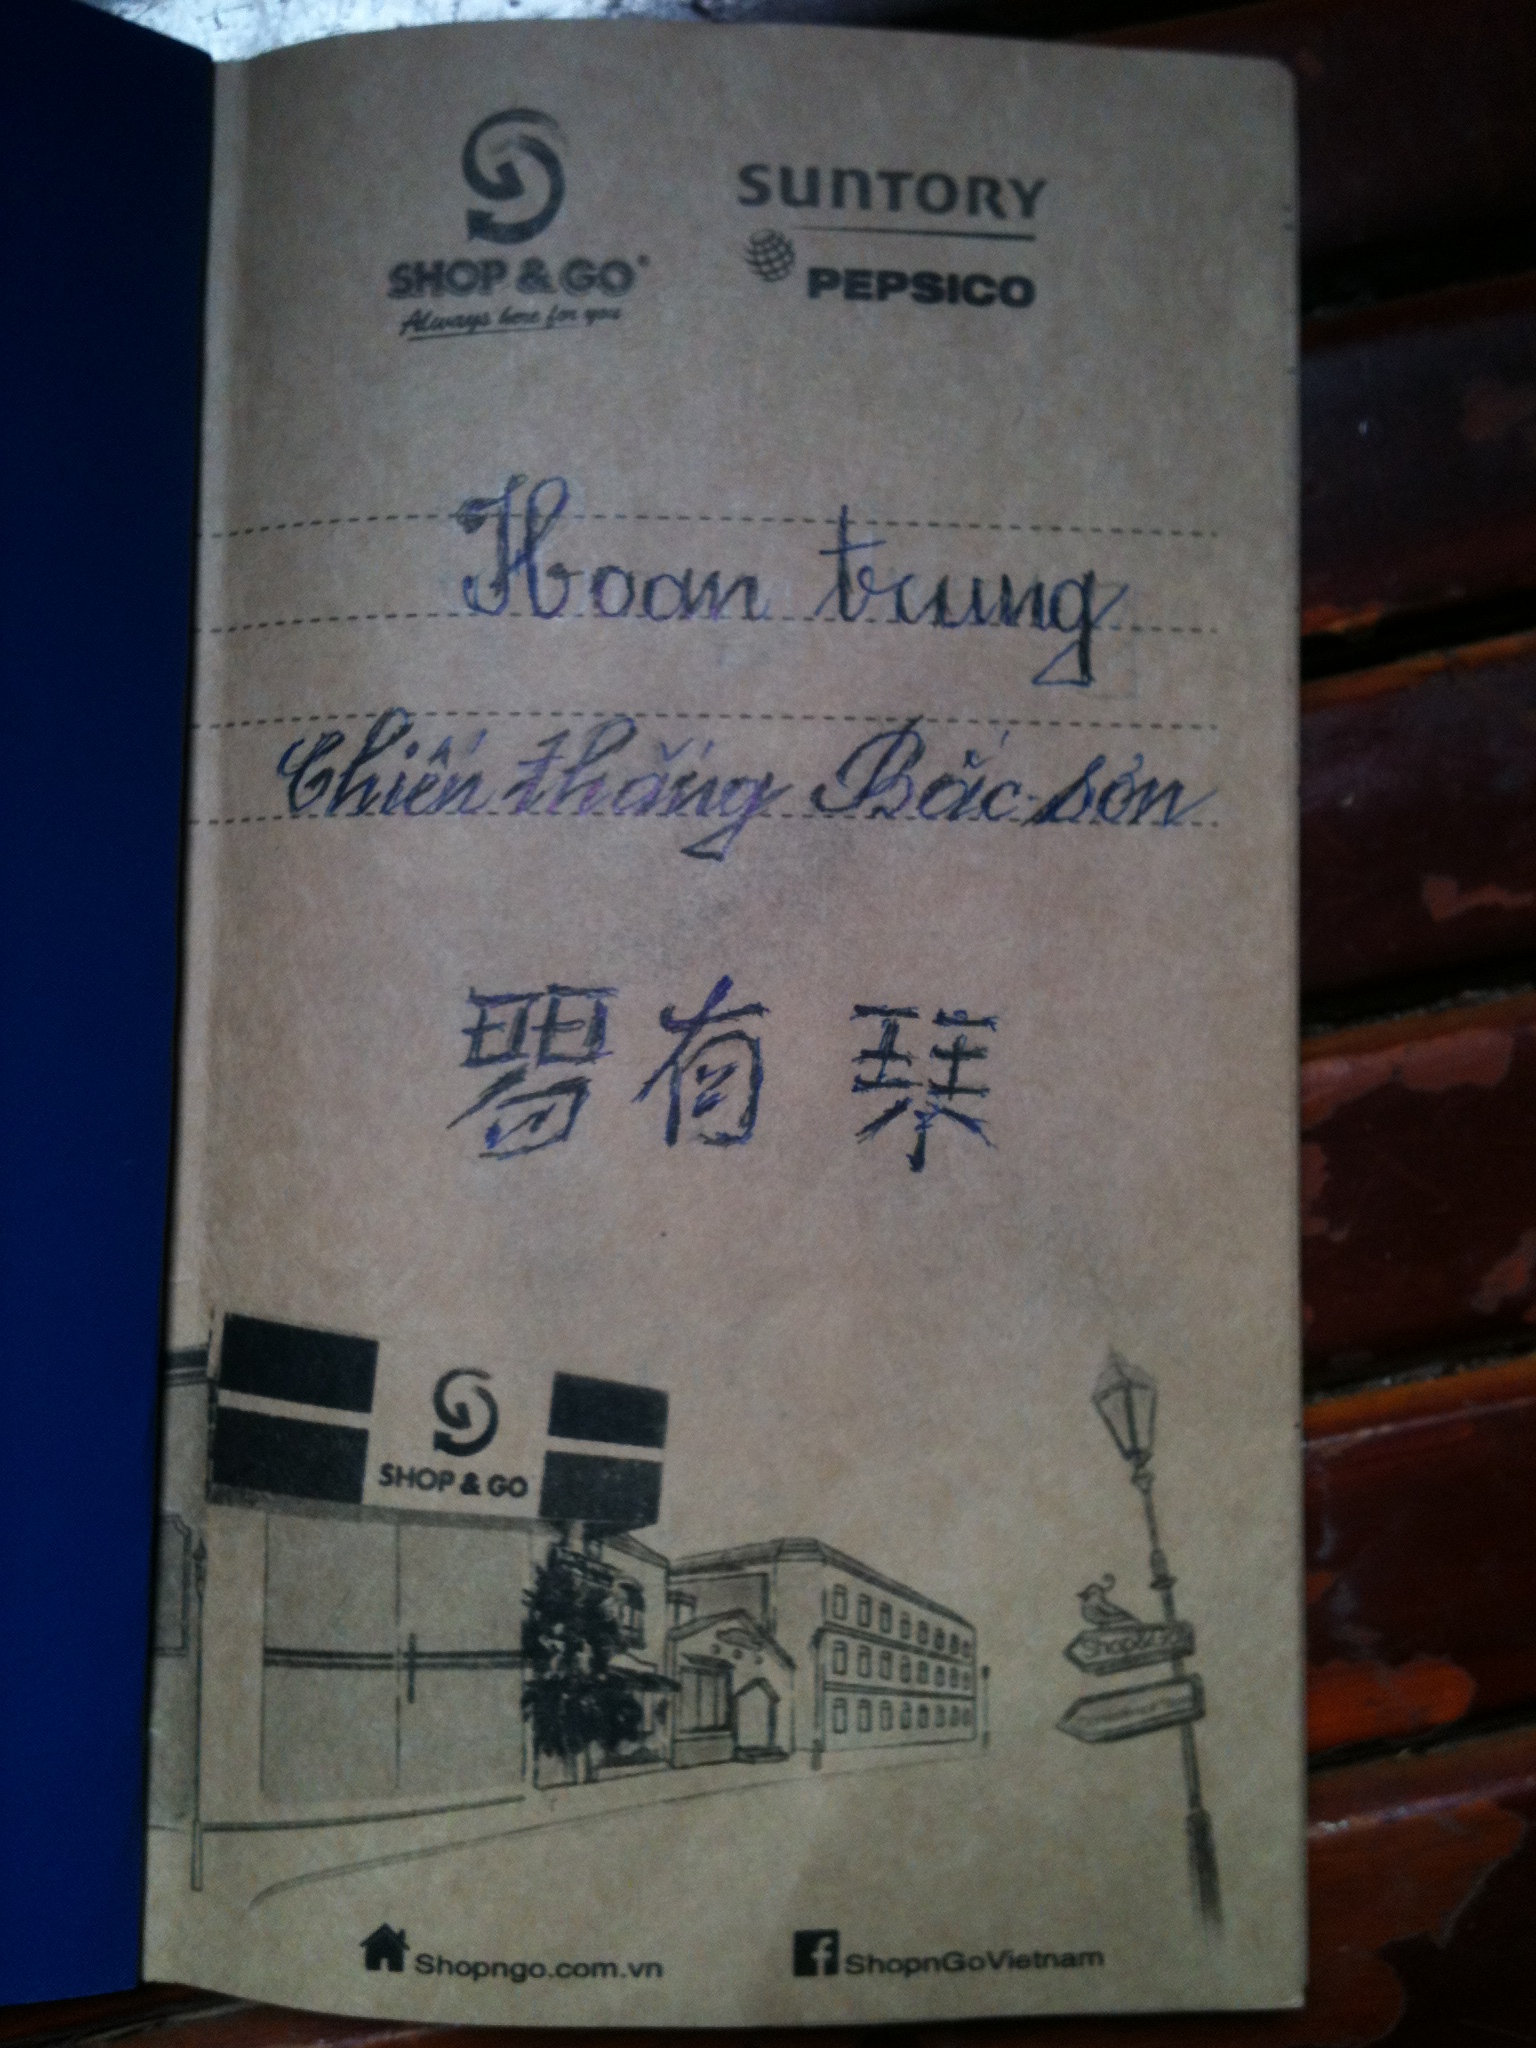 SHOP & GO®
Always here for you
SUNTORY
PEPSICO
Hoan trung
Chiến thắng Bắc sơn
有
SHOP & GO
Shopngo.com.vn
ShopnGoVietnam